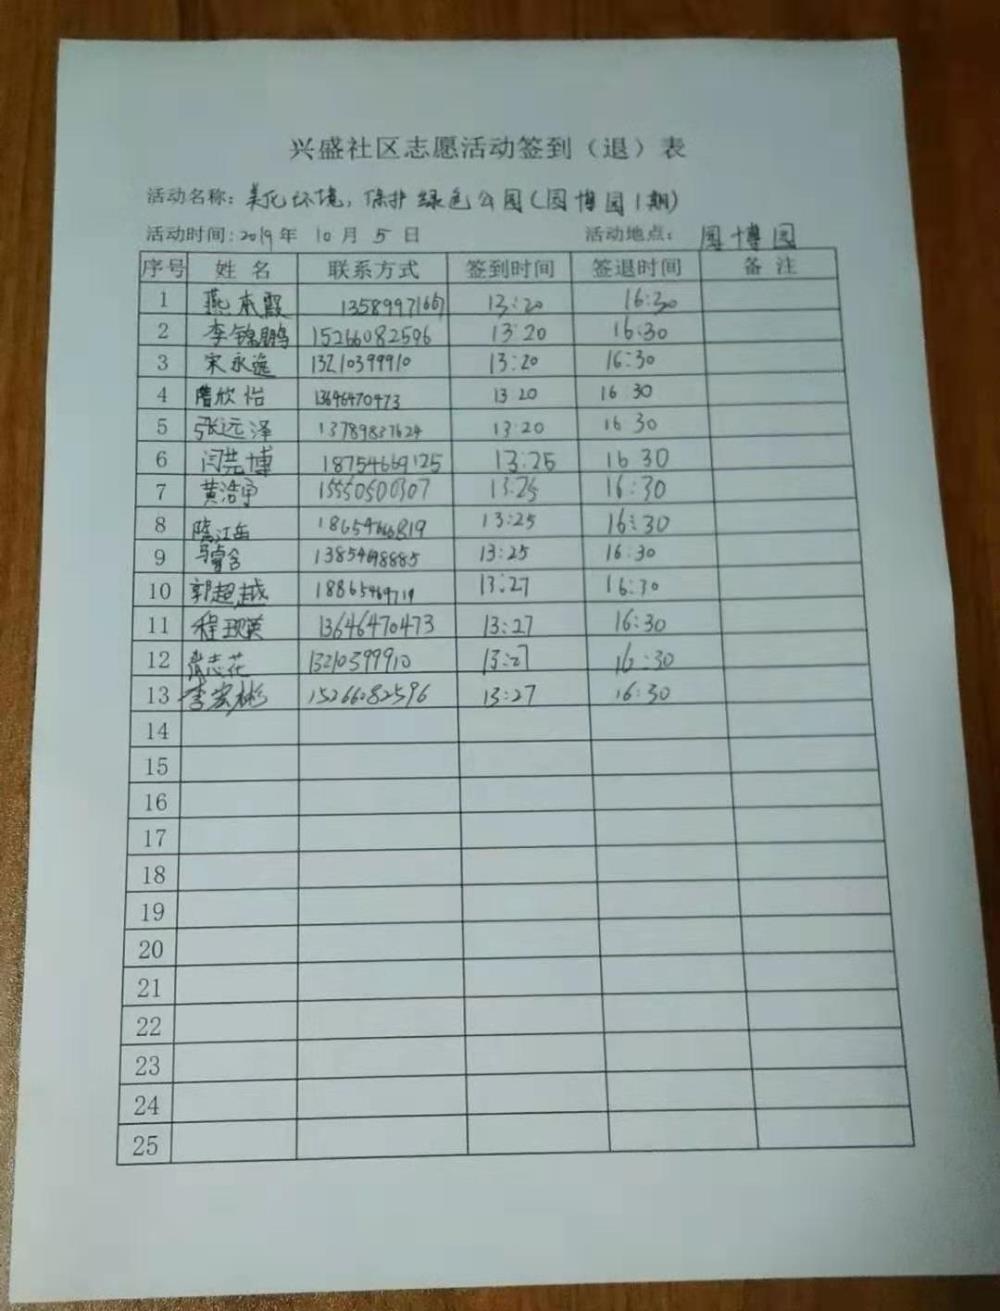 兴盛社区志愿活动签到（退）表
活动名称：美化环境，保护绿色公园（园博园1期）
活动时间：2019年 10月 5日 活动地点： 园博园
序号 姓名 联系方式 签到时间 签退时间 备注
1 燕本霞 13589971667 13:20 16:30
2 李锦鹏 15266082596 13:20 16:30
3 宋永逸 13210399910 13:20 16:30
4 欣怡 13646470473 13 20 16 30
5 张远泽 13789837624 13:20 16 30
6 闫尧博 18754669125 13:25 16 30
7 黄浩宇 15550500307 13:25 16:30
8 江岳 13:25 16:30
9 13854698885 13:25 16:30
10 郭超越 18865469719 13:27 16:30
11 程现英 13646470473 13:27 16:30
12 志花 13210399910 13:27 16:30
13 李宏彬 15266082596 13:27 16:30
14
15
16
17
18
19
20
21
22
23
24
25